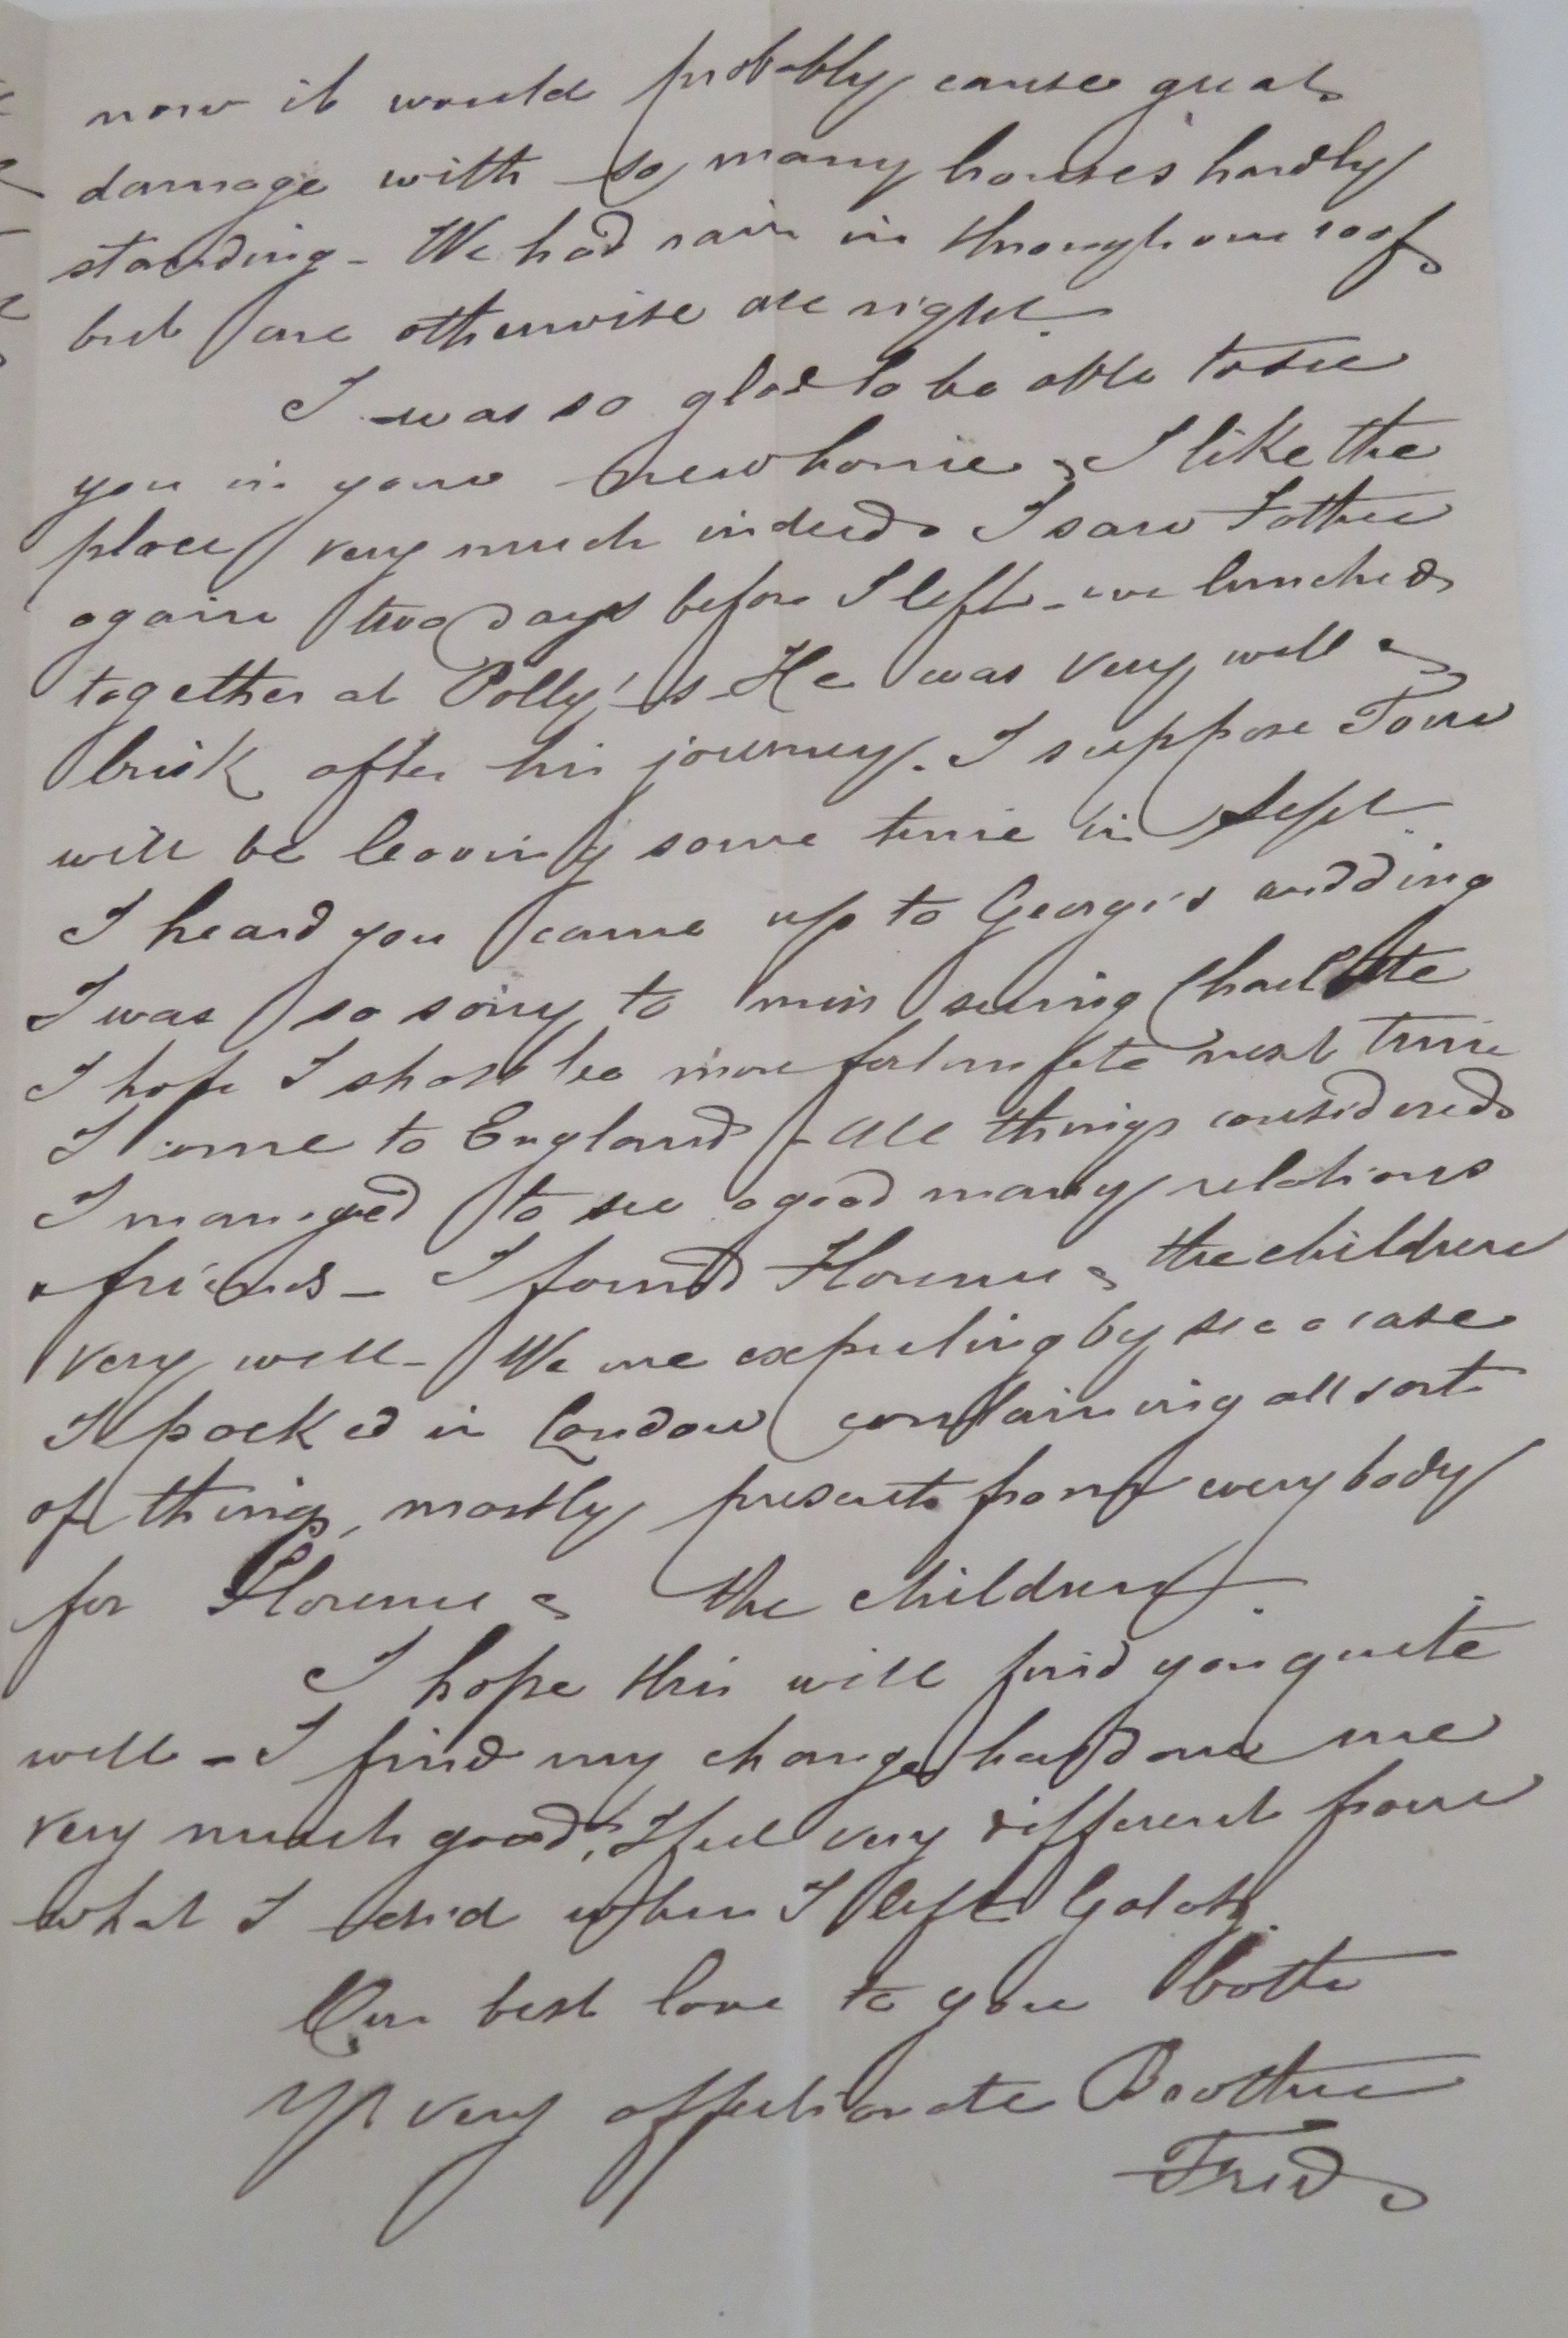 now it would probably cause great
damage with so many houses hardly
standing - We had rain in through our roof
but are otherwise all right.
I was so glad to be able to see
you in your new home & I like the
place very much indeed. I saw Father
again two days before I left - we lunched
together at Polly's - He was very well &
brisk after his journey. I suppose Tom
will be leaving some time in Sept.
I heard you came up to George's wedding
I was so sorry to miss seeing Charlotte
I hope I shall be more fortunate next time
I come to England - All things considered
I managed to see a good many relations
& friends - I found Florence & the children
very well - We are expecting by sea a case
I packed in London containing all sorts
of things, mostly presents from every body
for Florence & the children.
I hope this will find you quite
well - I find my change has done me
very much good, I feel very different from
what I did when I left Galatz.
Our best love to you both
Yr very affectionate Brother
Fred